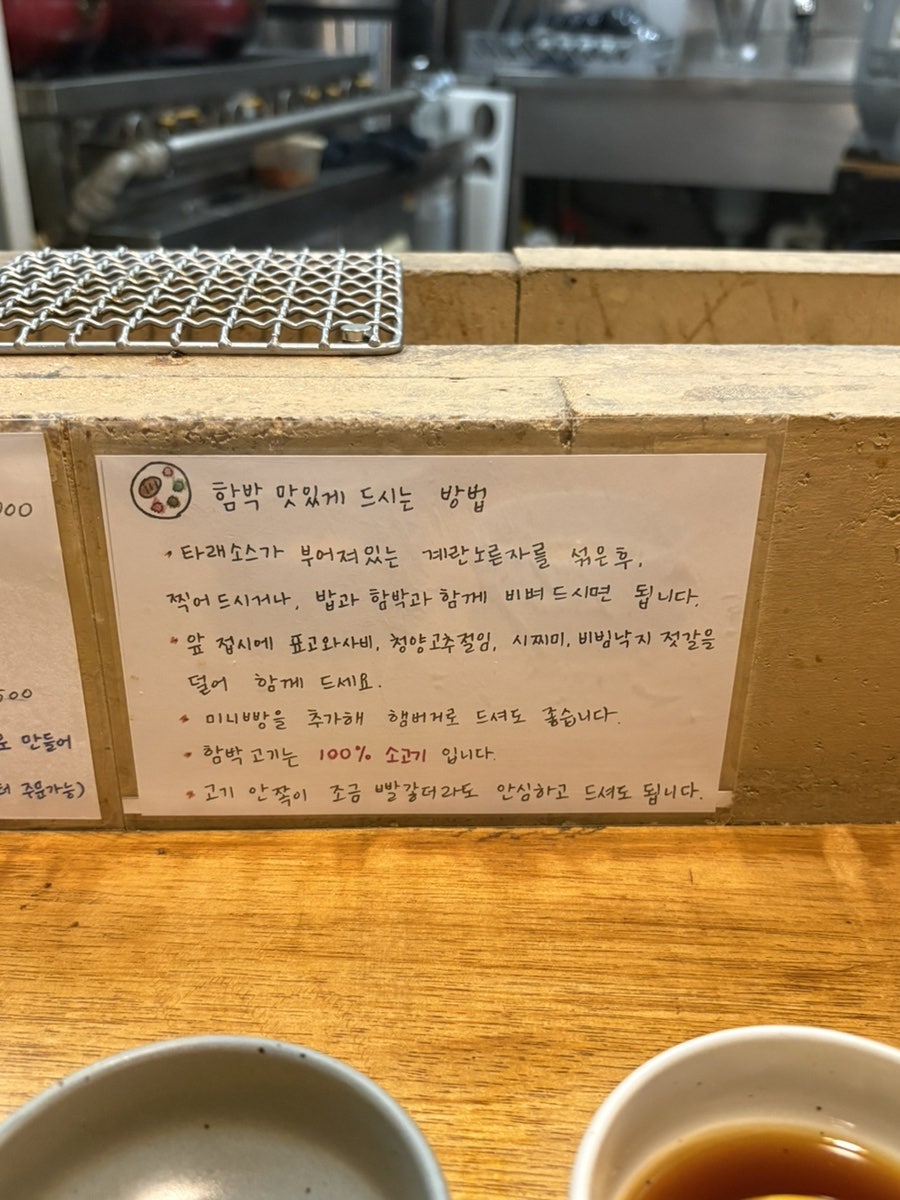 함박 맛있게 드시는 방법
• 타래소스가 부어져있는 계란노른자를 섞은후,
찍어드시거나, 밥과 함박과 함께 비벼드시면 됩니다.
• 앞 접시에 표고와사비, 청양고추절임, 시찌미, 비빔낙지 젓갈을
덜어 함께 드세요.
• 미니빵을 추가해 햄버거로 드셔도 좋습니다.
• 함박고기는 100% 소고기 입니다.
• 고기 안쪽이 조금 빨갛더라도 안심하고 드셔도 됩니다.
000
500
만들어
주문가능)